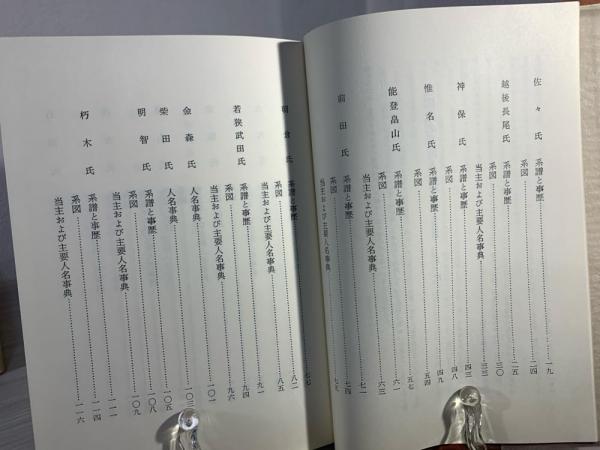 佐々氏 系譜と事歴……一九
系図……二四
越後長尾氏 系譜と事歴……二五
系図……三〇
当主および主要人名事典……三三
神保氏 系譜と事歴……四三
系図……四八
椎名氏 系譜と事歴……四九
系図……五四
能登畠山氏 系譜と事歴……五七
系図……六一
当主および主要人名事典……六三
前田氏 系譜と事歴……七一
系図……七四
当主および主要人名事典……七五
朝倉氏 系譜と事歴……七七
系図……八二
当主および主要人名事典……八五
若狭武田氏 系譜と事歴……九一
系図……九四
当主および主要人名事典……九六
金森氏 人名事典……一〇一
柴田氏 人名事典……一〇三
明智氏 系譜と事歴……一〇五
系図……一〇八
当主および主要人名事典……一〇九
朽木氏 系譜と事歴……一一一
系図……一一四
当主および主要人名事典……一一六